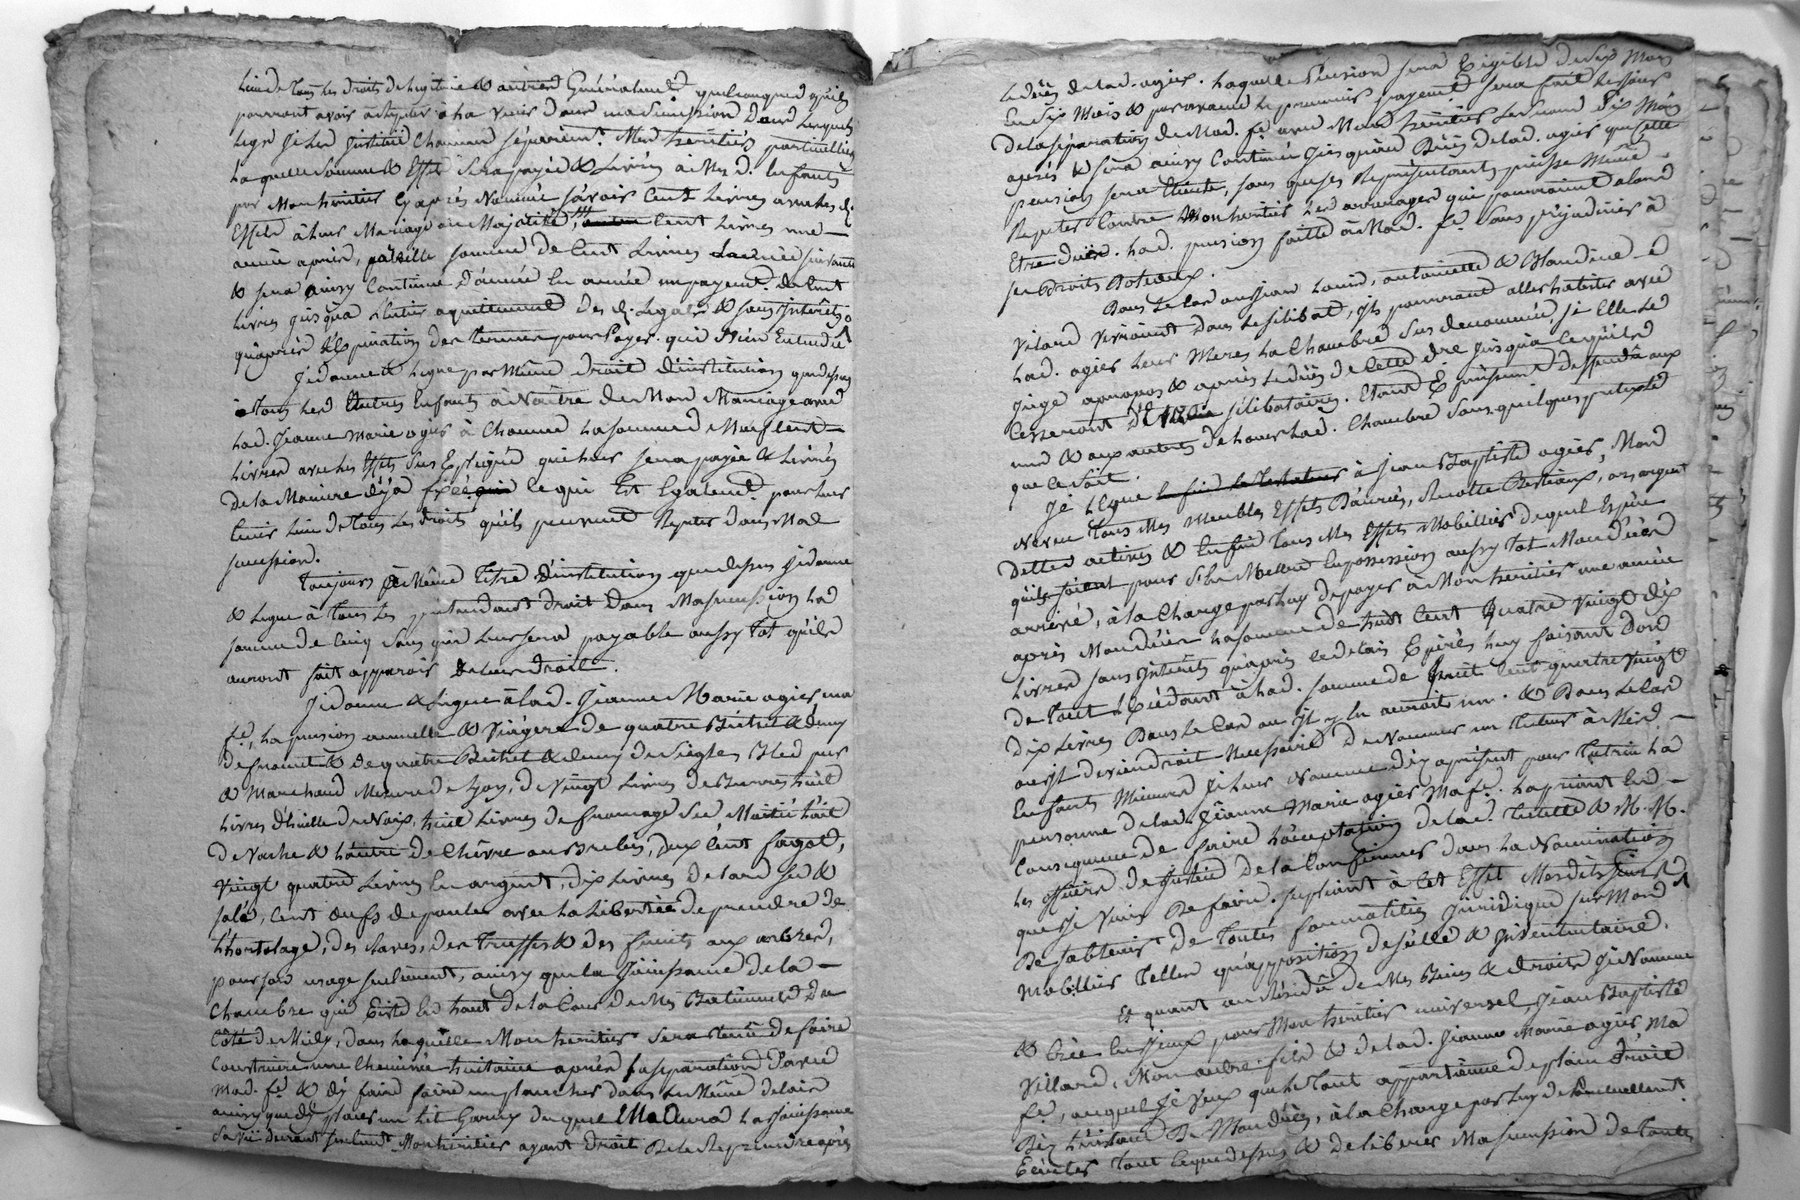 Lieu de Tous Les droits de Legitime & autres Généralemt. quelconques qu'ils
pourront avoir à Repeter à La venir dans ma succession Dans Lesquels
Legs je Les institüe Chacunne séparémt. Mes heritiers particulliers
Laquelle somme & Effets Sera payée & Livrée à Mes d. Enfants
par Mon heritier Cy après Nommé sçavoir Cent Livres avec les d.
Effets à Leur Mariage ou Majorité, Cent Livres une
année après, pareille somme de Cent Livres L'année suivante
& sera ainsy Continué D'année En année un payemt. de Cent
Livres jusqu'à Entier aquittement Des d. Legats & sans Interêts
qu'après L'Expiration des termes pour Payer. qui Bien Entendu
Je donne & Legue par Même droit d'institution que dessus
à Tous Les Autres Enfants à Naitre de Mon Mariage avec
Lad. Jeanne Marie agier à Chacune La somme de Neuf Cent
Livres avec Les Effets Sus Expliqué qui Leur sera payée & Livrés
De la Maniere déja fixée Ce qui Est Egalemt. pour Leur
tenir Lieu de Tous Les droits qu'ils peuvent Repeter Dans Mad.
succession.
Toujours à Même Titre D'institution que dessus Je donne
& Legue à Tous Les prétendant droit Dans Ma succession La
somme de Cinq Sous qui Leur sera payable aussy Tot qu'ils
auront fait apparoir de Leur droit.
Je donne & Legue à Lad. Jeanne Marie agier ma
fe. La pension annuelle & Viagere de quatre Bichet & demy
de froment & de quatre Bichet & demy de Seigle Bled pur
& Marchand Mesure de Lyon, de Vingt Livres de Beurre huit
Livres d'huille de Noix, huit Livres de fromage Sec Moitié Lait
de Vache & Lautre de Chèvre ou Brebis, deux Cent fagot,
Vingt quatre Livres En argent, dix Livres de Lard sec &
salé, Cent œufs de poules avec La Liberté de prendre de
L'hortolage, des Raves, des Truffes & des fruits aux arbres,
pour son usage seulement, ainsy que La Jouissance de la
Chambre qui Existe En haut de la Cour de Mes Batiments Du
Côté de Midy, dans Laquelle Mon heritier Sera Tenu de faire
Construire une Cheminée huitaine après La separation d'avec
Mad. fe. & d'y faire faire un plancher dans Le Même delais
ainsy que d'y placer un Lit Garny duquel Elle aura La Jouissance
Sa vie durant seulemt. Mon heritier ayant droit De Le Reprendre après
Le déces de Lad. agier. Laquelle Pension sera Exigible de Six Mois
En Six Mois & par avance Le premier payemt. sera fait Le jour
De la séparation de Mad. fe. avec Mond. heritier Le second Six Mois
après & sera ainsy Continué jusqu'au Décès de Lad. agier que cette
pension sera Eteinte, sans que ses Représentants puisse Même
Repeter Contre Mon heritier Les arrerages qui pourroient alors
Etre düe. Lad. pension faitte à Mad. fe. sans préjudicier à
ses droits Dotaux.
Dans Le Cas ou Jean Louis, antoinette & Claudine
Vilard Viendroient Dans Le Celibat, ils pourront aller habiter avec
Lad. agier Leur Mere La Chambre Sus denommée, si Elle Le
Juge àpropos & après Le décès de Cette dre Jusqu'à Ce qu'ils
Cesseront D'Etre Célibataires. Etant Expréssemt. deffendu aux
uns & aux autres de Louer Lad. Chambre Sous quelques pretexte
que Ce soit.
Je Legue à Jean Baptiste agier, Mon
Neveu Tous Mes Meubles Effets Denrées, Recolte Bestiaux, or argent
Dettes actives & Enfin Tous Mes Effets Mobilliers de quel Espece
qu'ils soient pour S'En Mettre En possession aussy Tot Mon Décès
arrivé, à La Charge par Luy de payer à Mon heritier une année
après Mon décès La somme de huit Cent Quatre Vingt dix
Livres sans Interêts qu'après Le delais Expirés Luy faisant Don
De Tout L'Excédant à Lad. somme de huit Cent quatre Vingt
dix Livres Dans Le Cas ou Il y En auroit un. & Dans Le Cas
ou il deviendroit Necessaire de Nommer un Tuteur à Mesd.
Enfants Mineurs Je Leur Nomme d'ez apresent pour Tutrice La
personne de Lad. Jeanne Marie agier Ma fe. La priant En
Consequence de faire L'acceptation de Lad. Tutelle & M.M.
Les officiers de Justice De La Confirmer Dans La Nomination
que Je Viens De faire. Suppliant à Cet Effet Mesdits Sieurs
De sabstenir De Toutes formalités Juridique sur Mond.
Mobillier Telles qu'apposition de scellé & Inventaire.
Et quant au Résidu de Mes Biens & droits Je Nomme
& Crée En Jceux pour Mon heritier universel, Jean Baptiste
Villard, Mon autre fils & de Lad. Jeanne Marie agier Ma
fe., auquel Je Veux que Le Tout appartienne de plain Droit
Dez L'instant De Mon décès, à La Charge par Luy
Executer Tout Ce que dessus & de Liberer Ma succession de Toutes